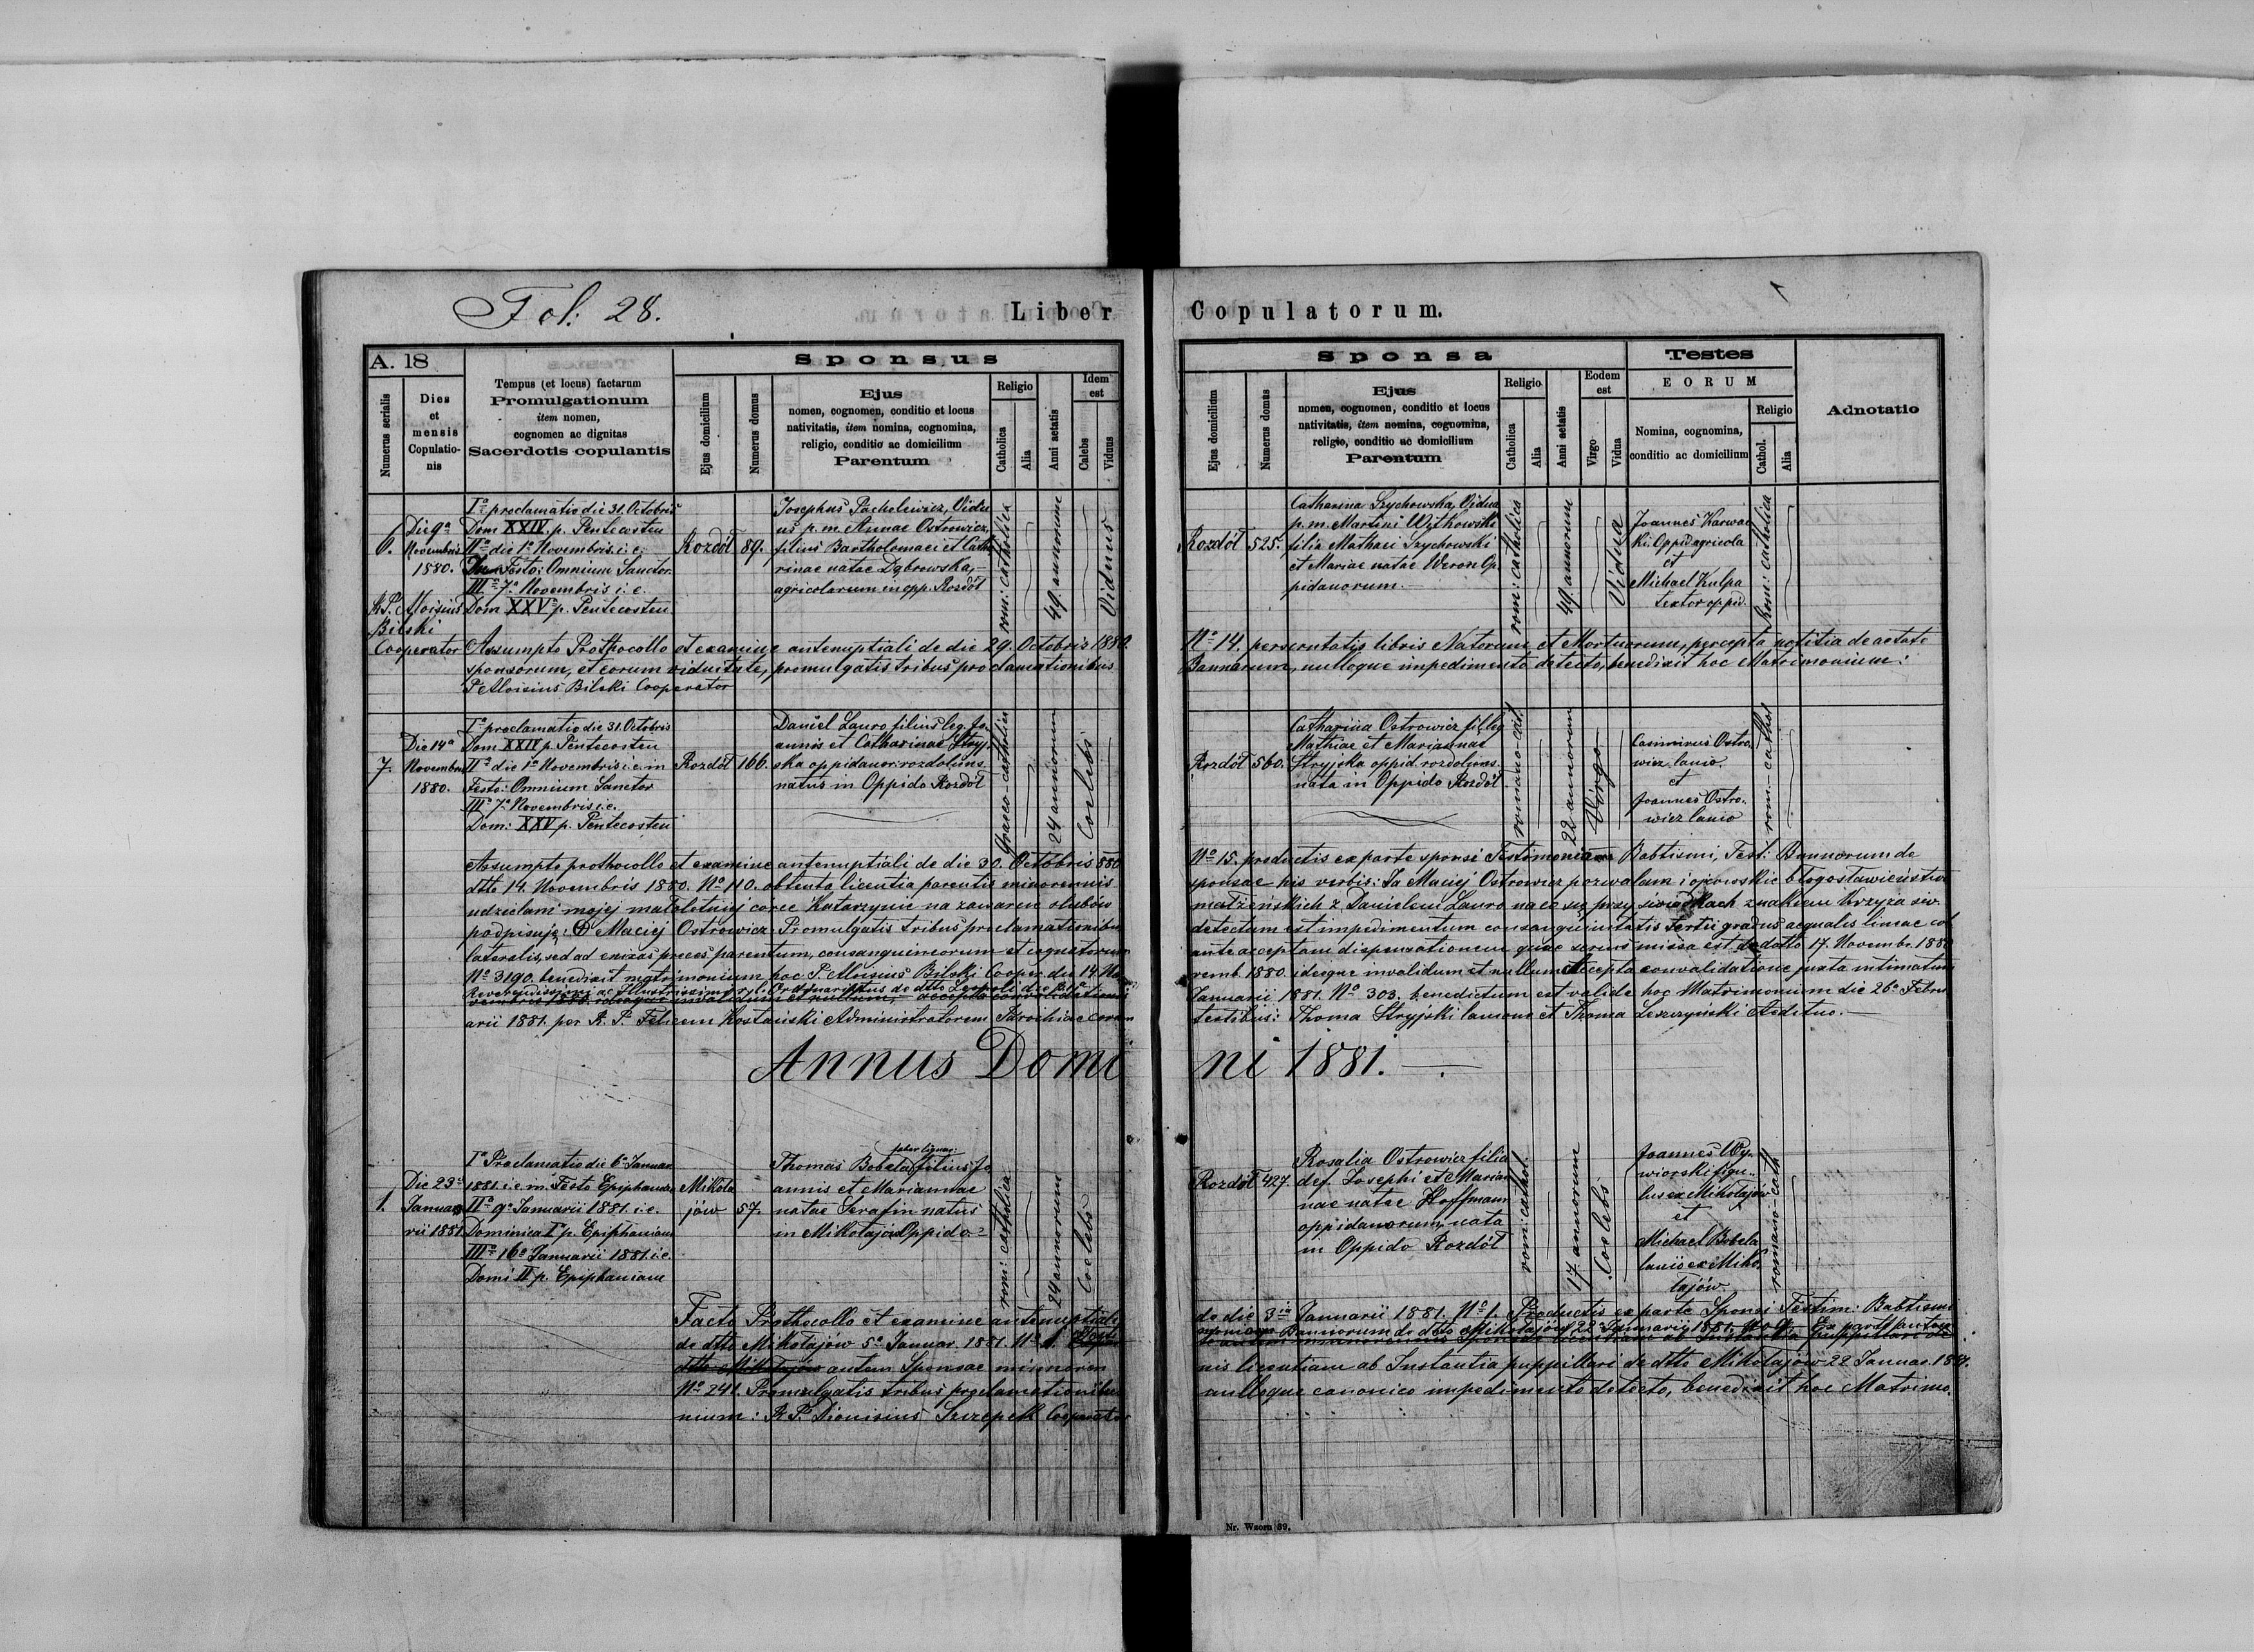 Fol: 28.
Liber Copulatorum.
A. 18
Numerus serialis
Dies
et
mensis
Copulatio-
nis
Tempus (et locus) factarum
Promulgationum
item nomen,
cognomen ac dignitas
Sacerdotis copulantis
Sponsus
Ejus domicilium
Numerus domus
Ejus
nomen, cognomen, conditio et locus
nativitatis, item nomina, cognomina,
religio, conditio ac domicilium
Parentum
Religio
Catholica
Alia
Anni aetatis
Idem
est
Calebs
Viduus
Sponsa
Ejus domicilium
Numerus domus
Ejus
nomen, cognomen, conditio et locus
nativitatis, item nomina, cognomina,
religio, conditio ac domicilium
Parentum
Religio
Catholica
Alia
Anni aetatis
Eodem
est
Virgo
Vidua
Testes
EORUM
Nomina, cognomina,
conditio ac domicilium
Religio
Cathol.
Alia
Adnotatio
6.
Die 9a
Novembris
1880.
R. P. Aloisius
Bilski
Cooperator
Ia proclamatio die 31. Octobris
Dom XXIV. p. Pentecosten
IIa die 1a Novembris. i. e.
Festo: Omnium Sanctor.
IIIa 7a Novembris i. e.
Dom XXV p. Pentecosten
Rozdół
89.
Josephus Pacholewicz, Vidu
us p. m. Annae Ostrowicz,
filius Bartholomaei et Catha
rinae natae Dąbrowska,
agricolarum in opp. Rozdół
rom: catholica
49. annorum
Viduus
Rozdół
525.
Catharina Szychowska, Vidua
p. m. Martini Witkowski
filia Mathaei Szychowski
et Mariae natae Weron Op
pidanorum.
rom: catholica
49. annorum
Vidua
Joannes Karwac
ki. Oppid agricola
et
Michael Kulpa
textor oppid.
Rom: catholica
Assumpto Prothocollo et examine antenuptiali de die 29. Octobris 1880. No 14. perscrutatis libris Natorum et Mortuorum, percepta notitia de aetate
sponsorum, et eorum viduitate, promulgatis tribus proclamationibus Bannorum, nulloque impedimento detecto, benedixit hoc Matrimonium:
P. Aloisius Bilski Cooperator
7.
Die 14a
Novembris
1880.
Ia proclamatio die 31. Octobris
Dom XXIV p. Pentecosten
IIa die 1a Novembris i. e. in
Festo: Omnium Sanctor
IIIa 7a Novembris i. e.
Dom: XXV p. Pentecosten
Rozdół
166.
Daniel Lauro filius leg. Jo.
annis et Catharinae Stryj.
ska oppidanor. rozdoliens.
natus in Oppido Rozdół
Graeco-catholica
24 annorum
Coelebs
Rozdół
560.
Catharina Ostrowicz fil. leg
Mathiae et Marianae
Stryjska oppid. rozdoliens.
nata in Oppido Rozdół
romano-cat.
22 annorum
Virgo
Casimirus Ostro.
wicz lanio.
et
Joannes Ostro.
wicz lanio
rom.-cathol
Assumpto prothocollo et examine antenuptiali de die 30. Octobris 880 No 15. productis ex parte sponsi Testimonium Babtismi, Test: Bannorum de
dtto 14. Novembris 1880. No 110. obtenta licentia parentis minorennis sponsae his verbis: Ja Maciej Ostrowicz pozwalam i ojcowskie błogosławieństwo
udzielam mojej małoletniej corce Katarzynie na zawarcie ślubów małżeńskich z Danielem Lauro na co się przy świadkach znakiem krzyża św.
podpisuję: Maciej Ostrowicz. Promulgatis tribus proclamationibus detectum est impedimentum consanguinitatis tertii gradus aequalis lineae col
lateralis, sed ad enixas preces parentum, consanguineorum et cognatorum ante acceptam dispensationem quae serius missa est de datto 17. Novembr. 1880
No 3190. benedixit matrimonium hoc P. Aloisius Bilski Cooper. die 14 No vemb. 1880. ideoque invalidum et nullum. Accepta convalidatione juxta intimatum
Reverendissimi ac Illustrissimi r. l. Ordinariatus de dtto Leopoli die
Januarii 1881. No 303. benedictum est valide hoc Matrimonium die 26a Febru
arii 1881. per R. P. Felicem Kostański Administratorem Parochiae coram testibus: Thoma Stryjski lanione et Thoma Leszczyński Aedituo.
Annus Domini 1881.
1.
Die 23a
Janua
rii 1881.
Ia Proclamatio die 6a Januar
1881. i. e. in Festo Epiphaniae
IIa 9a Januarii 1881. i. e.
Dominica Ia p. Epiphaniam
IIIa 16a Januarii 1881. i e.
Domi. II p. Epiphaniam
Mikoła
jów
57.
faber lignar
Thomas Bobela filius Jo
annis et Mariannae
natae Serafin natus
in Mikołajów Oppido
rom: catholica
24 annorum
Coelebs
Rozdół
427
Rosalia Ostrowicz filia
def. Josephi et Marian
nae natae Hoffmann
oppidanorum, nata
in Oppido Rozdół
rom: cathol.
17. annorum
Coelebs
Joannes Wy.
wiorski figu.
lus ex Mikołajów
et
Michael Bobela
lanio ex Miko.
łajów
romano-cath
Facto Prothocollo et examine antenuptiali de die 3ia Januarii 1881. No 1. Productis ex parte Sponsi Testim: Babtismi
de dtto Mikołajów 5a Januar. 1881. No
Bannorum de dtto Mikołajów 22a Januarii 1881. Ex parte
autem Sponsae minoren
nis licentiam ab Instantia puppillari de dtto Mikołajów 22 Januar. 1881.
No 241. Promulgatis tribus proclamationibus nulloque canonico impedimento detecto, benedixit hoc Matrimo.
nium: R. P. Dionisius Szczepek Cooperator
Nr. Wzoru 39.